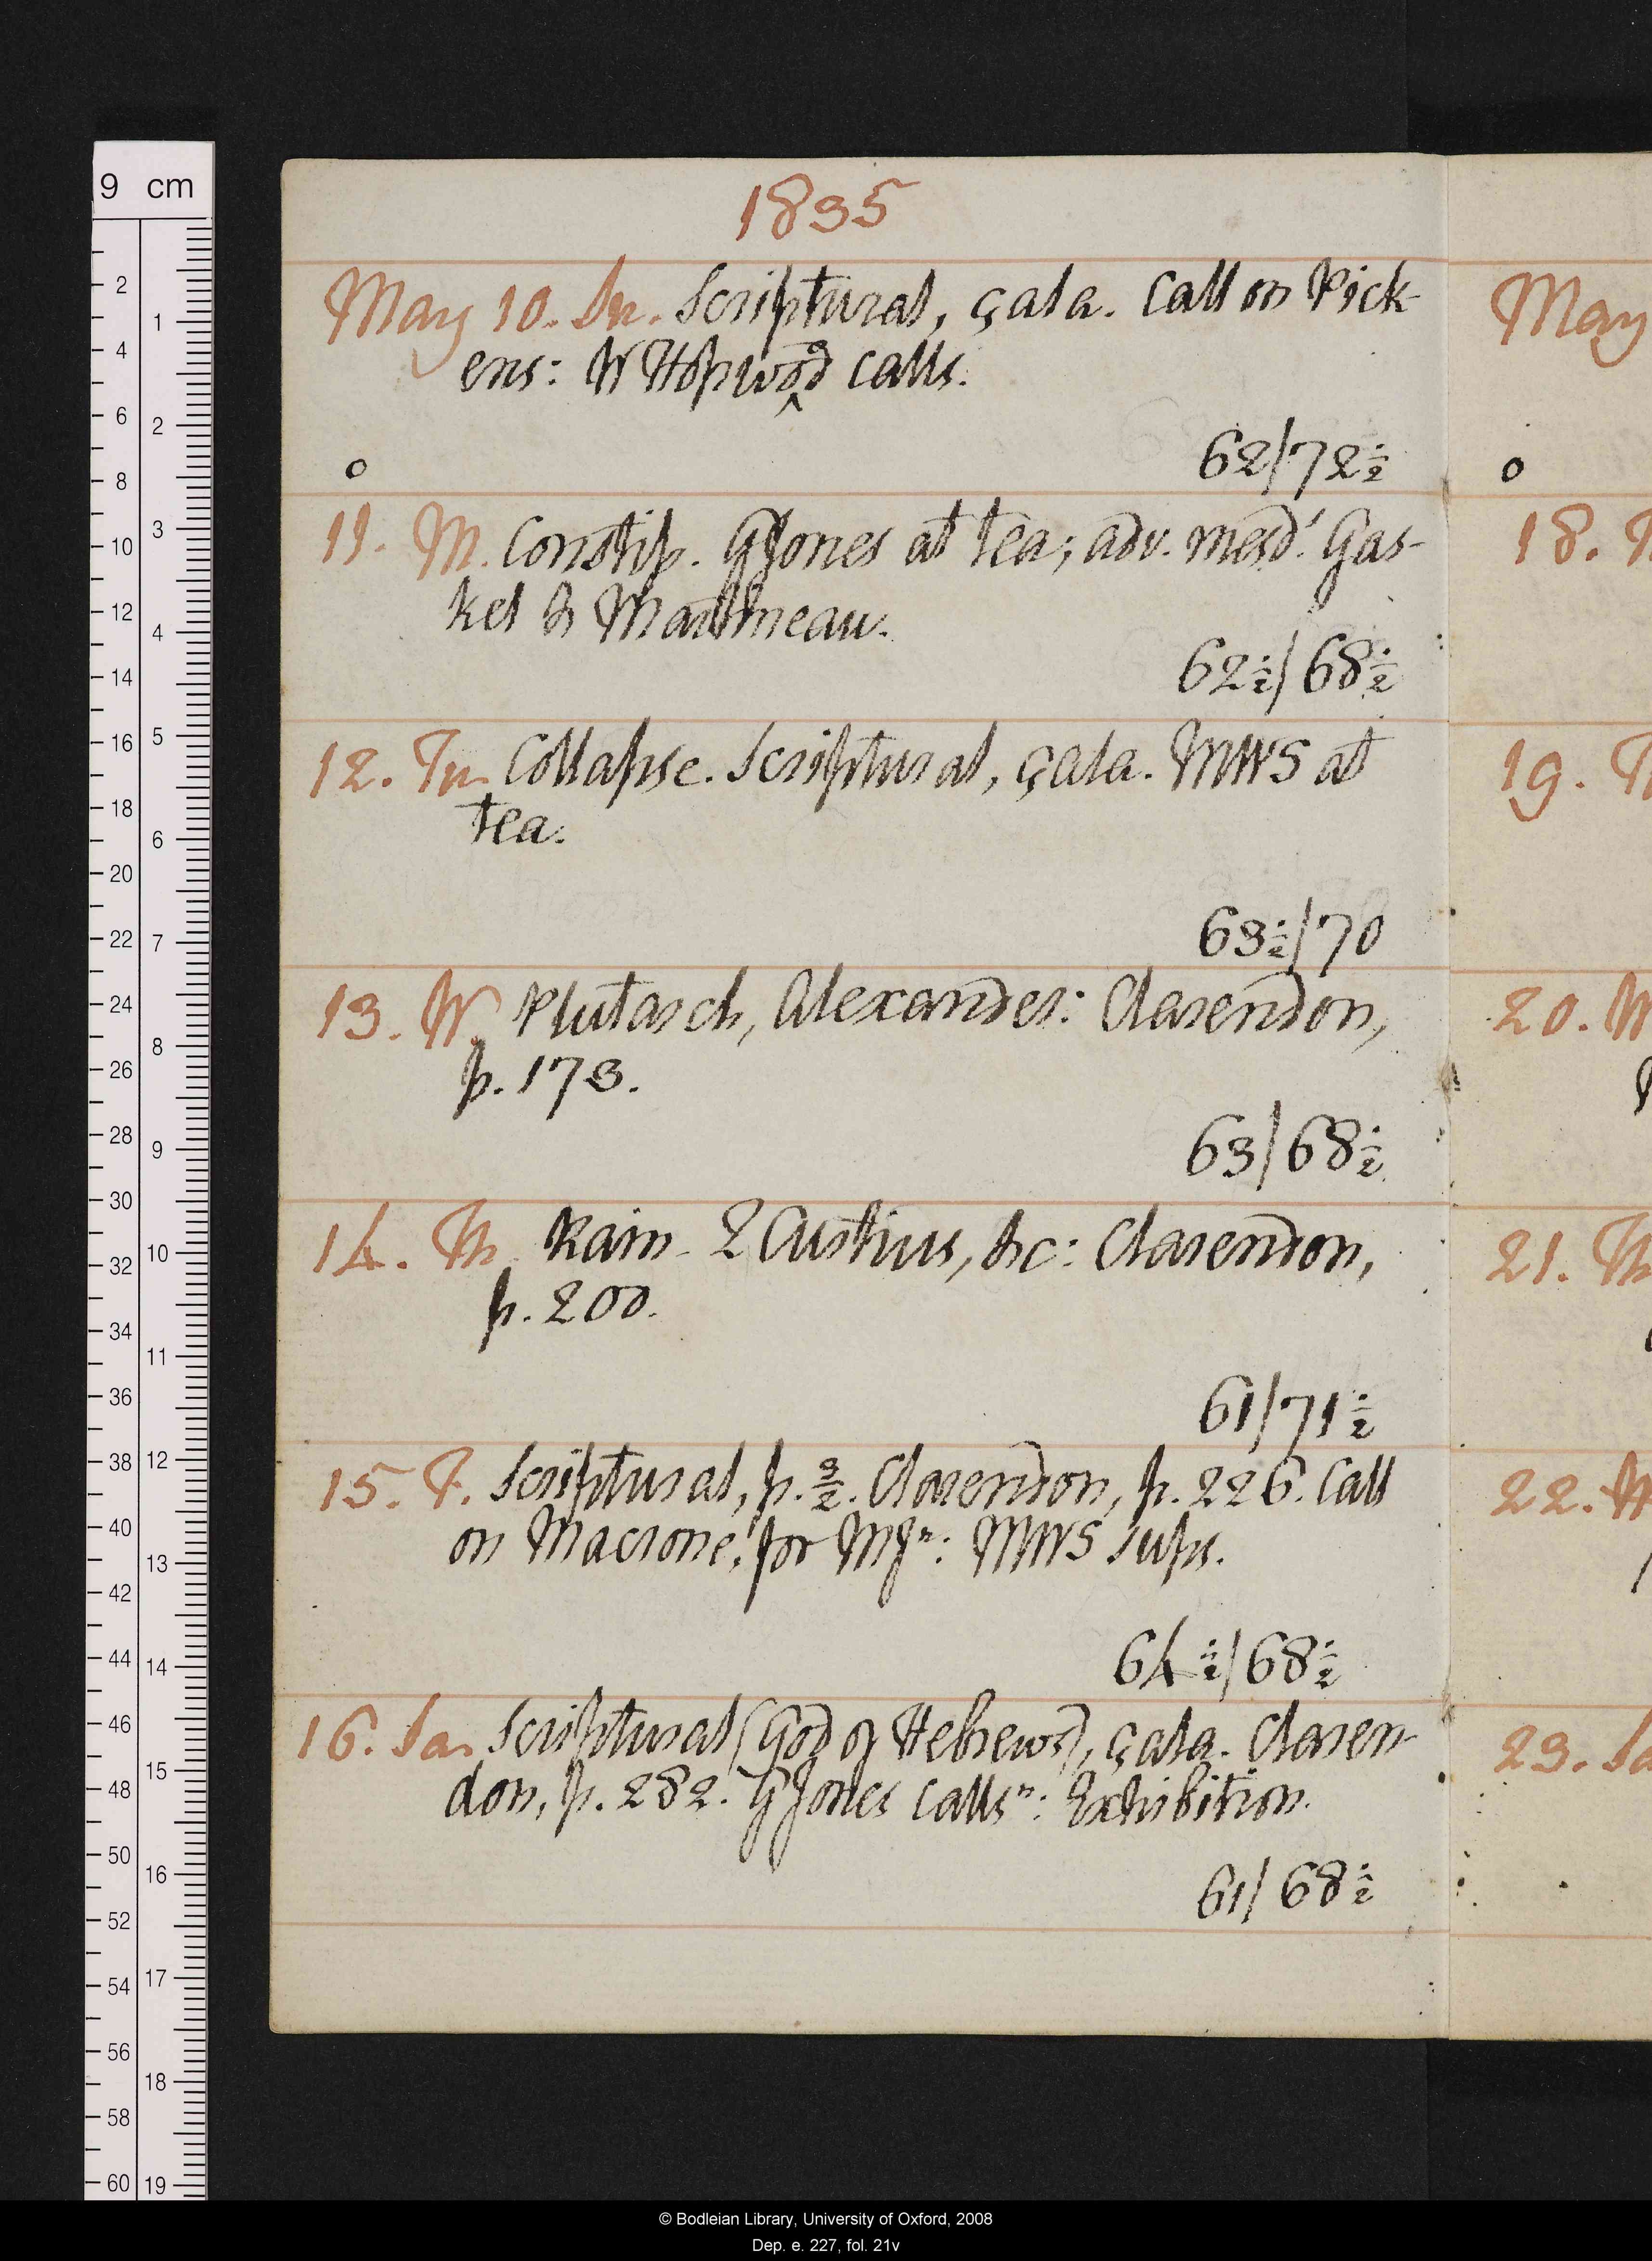 1835
May 10. Su. Scriptural, çala. Call on Pick-
ens: W Hopwood calls.
62/72½
11. M. Constip. G Jones at tea; adv. mesd.ˢ Gas-
kel & Martineau.
62½/68½
12. Tu. Collapse. Scriptural, çala. MWS at
tea.
63½/70
13. W. Plutarch, Alexander: Clarendon,
p. 173.
63/68½
14. Th. Rain. Q Curtius, &c: Clarendon,
p. 200.
61/71½
15. F. Scriptural, p. 3/2. Clarendon, p. 226. Call
on Macrone, for Mⁿ: MWS sups.
64½/68½
16. Sa. Scriptural (God of Hebrews), çala. Claren-
don, p. 282. G Jones callsⁿ: Exhibition.
61/68½
May
18.
19. T
20. W
21. Th
22.
23. Sa
9 cm
© Bodleian Library, University of Oxford, 2008
Dep. e. 227, fol. 21v